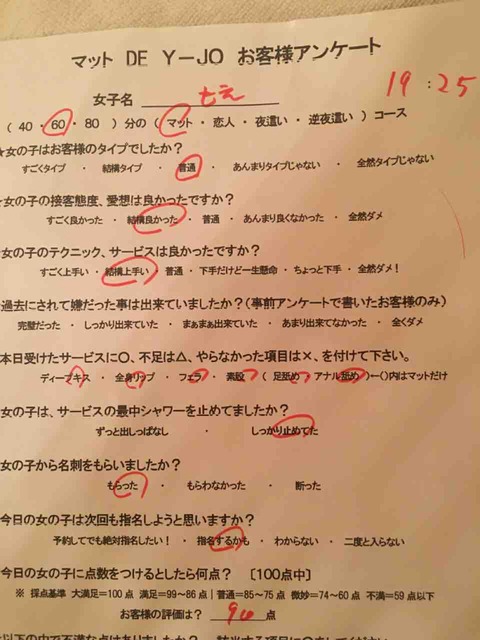 マット DE Y-JO お客様アンケート
19:25
女子名 七え
( 40 ・ 60 ・ 80 ) 分の ( マット ・ 恋人 ・ 夜這い ・ 逆夜這い ) コース
★女の子はお客様のタイプでしたか?
すごくタイプ ・ 結構タイプ ・ 普通 ・ あんまりタイプじゃない ・ 全然タイプじゃない
女の子の接客態度、愛想は良かったですか?
すごく良かった ・ 結構良かった ・ 普通 ・ あんまり良くなかった ・ 全然ダメ
女の子のテクニック、サービスは良かったですか?
すごく上手い ・ 結構上手い ・ 普通 ・ 下手だけど一生懸命 ・ ちょっと下手 ・ 全然ダメ!
過去にされて嫌だった事は出来ていましたか?(事前アンケートで書いたお客様のみ)
完璧だった ・ しっかり出来ていた ・ まぁまぁ出来ていた ・ あまり出来てなかった ・ 全くダメ
本日受けたサービスに〇、不足は△、やらなかった項目は×、を付けて下さい。
ディープキス ・ 全身リップ ・ フェラ ・ 素股 ・ ( 足舐め ・ アナル舐め )←()内はマットだけ
女の子は、サービスの最中シャワーを止めてましたか?
ずっと出しっぱなし ・ しっかり止めてた
女の子から名刺をもらいましたか?
もらった ・ もらわなかった ・ 断った
今日の女の子は次回も指名しようと思いますか?
予約してでも絶対指名したい! ・ 指名するかも ・ わからない ・ 二度と入らない
今日の女の子に点数をつけるとしたら何点? 〔100点中〕
※ 採点基準 大満足=100点 満足=99~86点|普通=85~75点 微妙=74~60点 不満=59点以下
お客様の評価は? 90 点